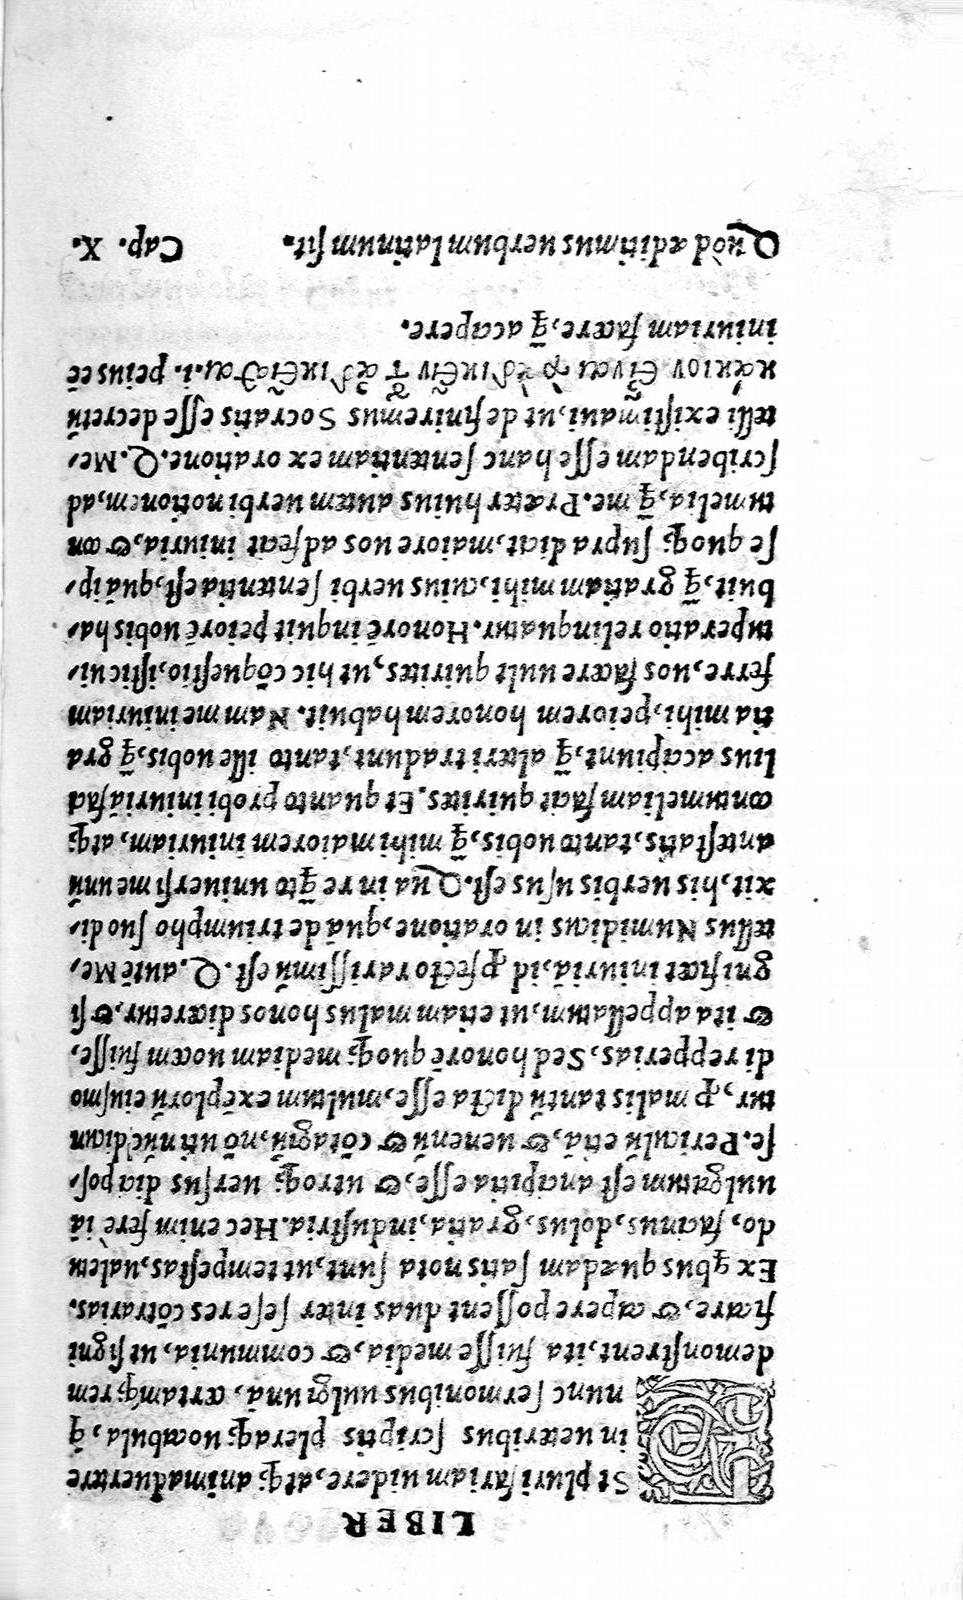 LIBER
ESt plurifariam uidere, atq; animaduertere
in ueteribus scriptis pleraq; uocabula, q̃
nunc sermonibus uulgi unã, certamq; rem
demonstrent, ita fuisse media, & communia, ut signi
ficare, & capere possent duas inter sese res cõtrarias.
Ex q̃bus quædam satis nota sunt, ut tempestas, ualetu
do, facinus, dolus, gratia, industria. Hec enim ferè iã
uulgatum est ancipitia esse, & utroq; uersus dici pos-
se. Periculũ etiã, & uenenũ & cõtagiũ, nõ uti nũc dicun
tur, ꝓ malis tantũ dicta esse, multum exẽplorũ eiusmo
di repperias, Sed honorẽ quoq; mediam uocem fuisse,
& ita appellatum, ut etiam malus honos diceretur, & si
gnificet iniuriã, id ꝓfecto rarissimũ est. Q. autẽ Me-
tellus Numidicus in oratione, quã de triumpho suo di-
xit, his uerbis usus est. Qua in re q̃to uniuersi me unũ
antestatis, tanto uobis, q̃ mihi maiorem iniuriam, atq;
contumeliam facit quirites. Et quanto probi iniuriã faci
lius accipiunt, q̃ alteri tradunt, tanto ille uobis, q̃ gra
tia mihi, peiorem honorem habuit. Nam me iniuriam
ferre, uos facere uult quirites, ut hic cõquestio, istic ui-
tuperatio relinquatur. Honorẽ inquit peiorẽ uobis ha-
buit, q̃ gratiam mihi, cuius uerbi sententia est, quã ip-
se quoq; supra dicit, maiore uos adfecit iniuria, & con
tumelia, q̃ me. Præter huius autem uerbi notionem, ad
scribendam esse hanc sententiam ex oratione. Q. Me-
telli existimaui, ut definiremus Socratis esse decretũ
κάκιον εἶναι τὸ ἀδικεῖν ἢ τὸ ἀδικεῖσθαι. i. peius eẽ
iniuriam facere, q̃ accipere.
Quòd æditimus uerbum latinum sit. Cap. X.